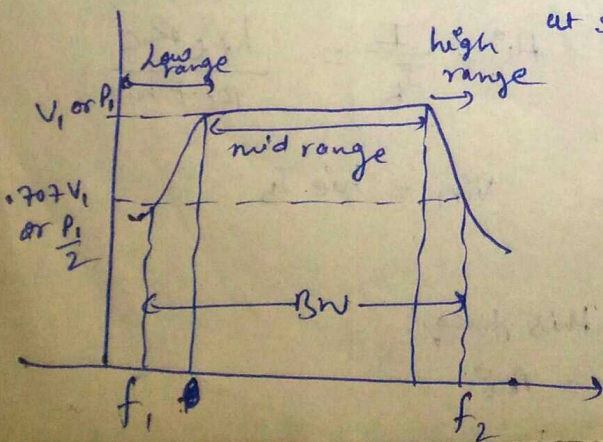 at
high
range
Low
range
V₁ or P₁
mid range
.707V₁
or P₁/2
BW
f₁
f₂